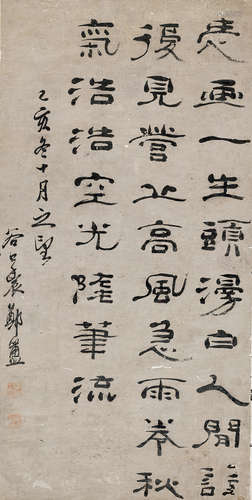 畫一生頭漫白人間誰
復見營丘高風急雨岑秋
氣浩浩空光隨筆流
乙亥冬十月之望
谷口農鄭簠